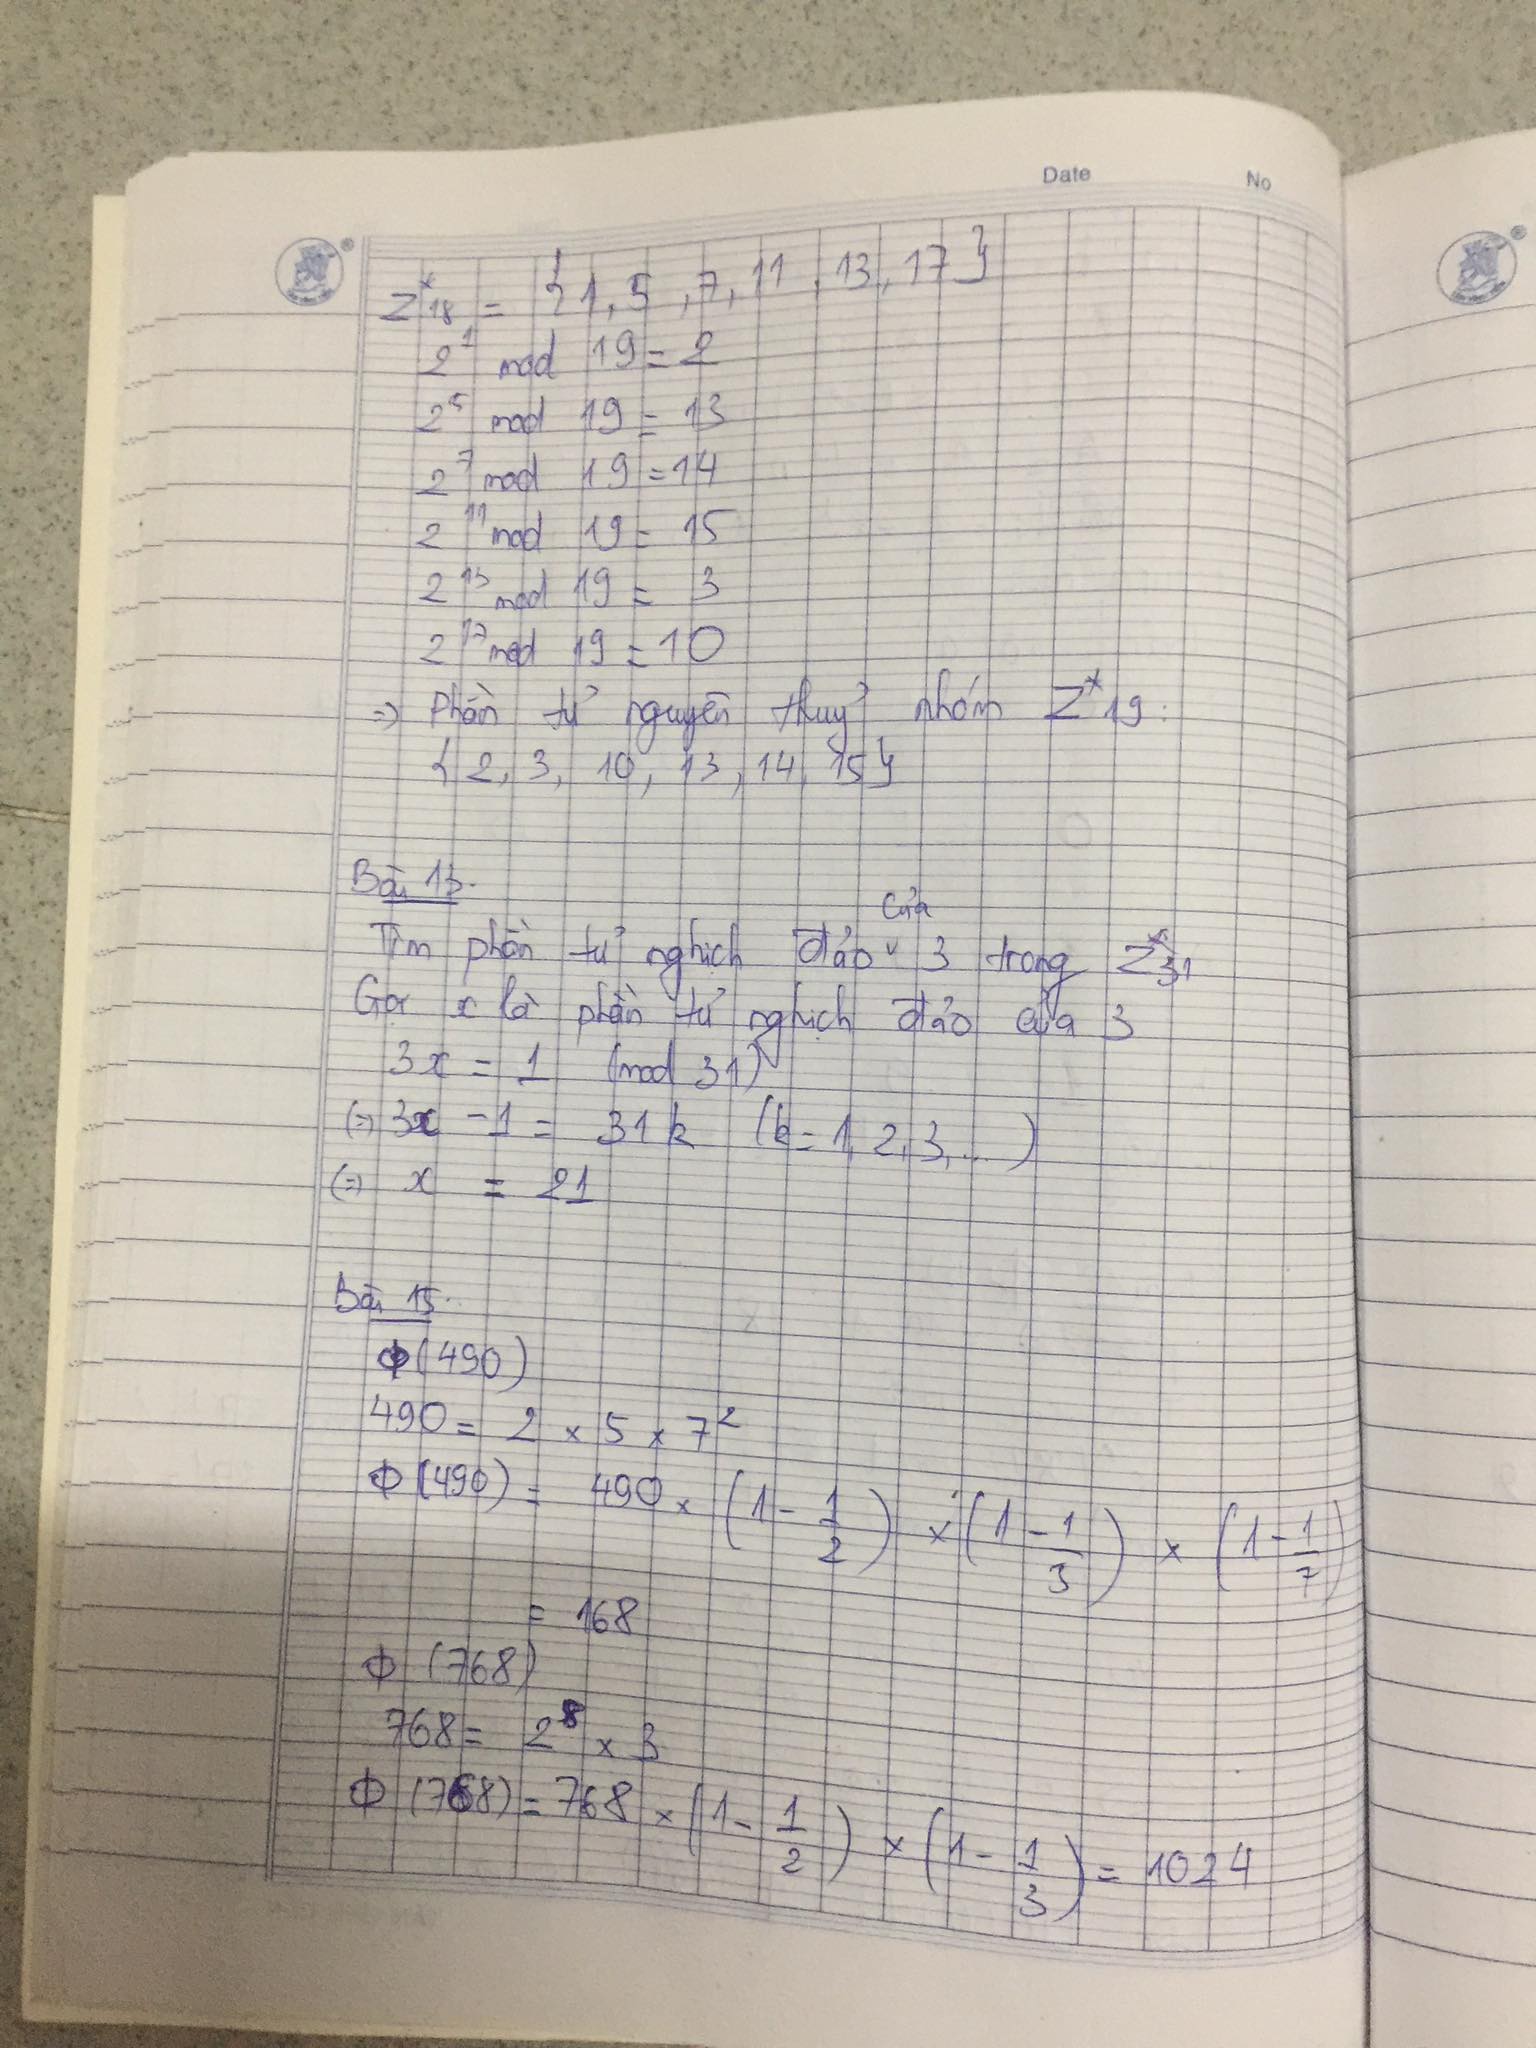 Date No
Z*18 = {1, 5, 7, 11, 13, 17}
2^1 mod 19 = 2
2^5 mod 19 = 13
2^7 mod 19 = 14
2^11 mod 19 = 15
2^13 mod 19 = 3
2^17 mod 19 = 10
=> Phần tử nguyên thuỷ nhóm Z*19:
{2, 3, 10, 13, 14, 15}
Bài 13.
Tìm phần tử nghịch đảo của 3 trong Z*31
Gọi x là phần tử nghịch đảo của 3
3x = 1 (mod 31)
(=) 3x - 1 = 31k (k = 1, 2, 3, ...)
(=) x = 21
Bài 15.
Φ(490)
490 = 2 × 5 × 7^2
Φ(490) = 490 × (1 - 1/2) × (1 - 1/3) × (1 - 1/7)
= 168
Φ(768)
768 = 2^8 × 3
Φ(768) = 768 × (1 - 1/2) × (1 - 1/3) = 1024